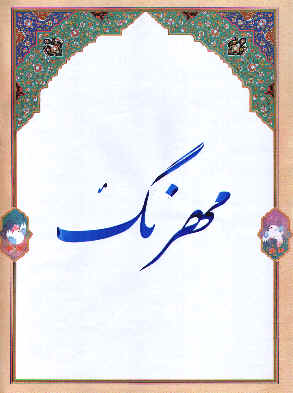 مهرنگ